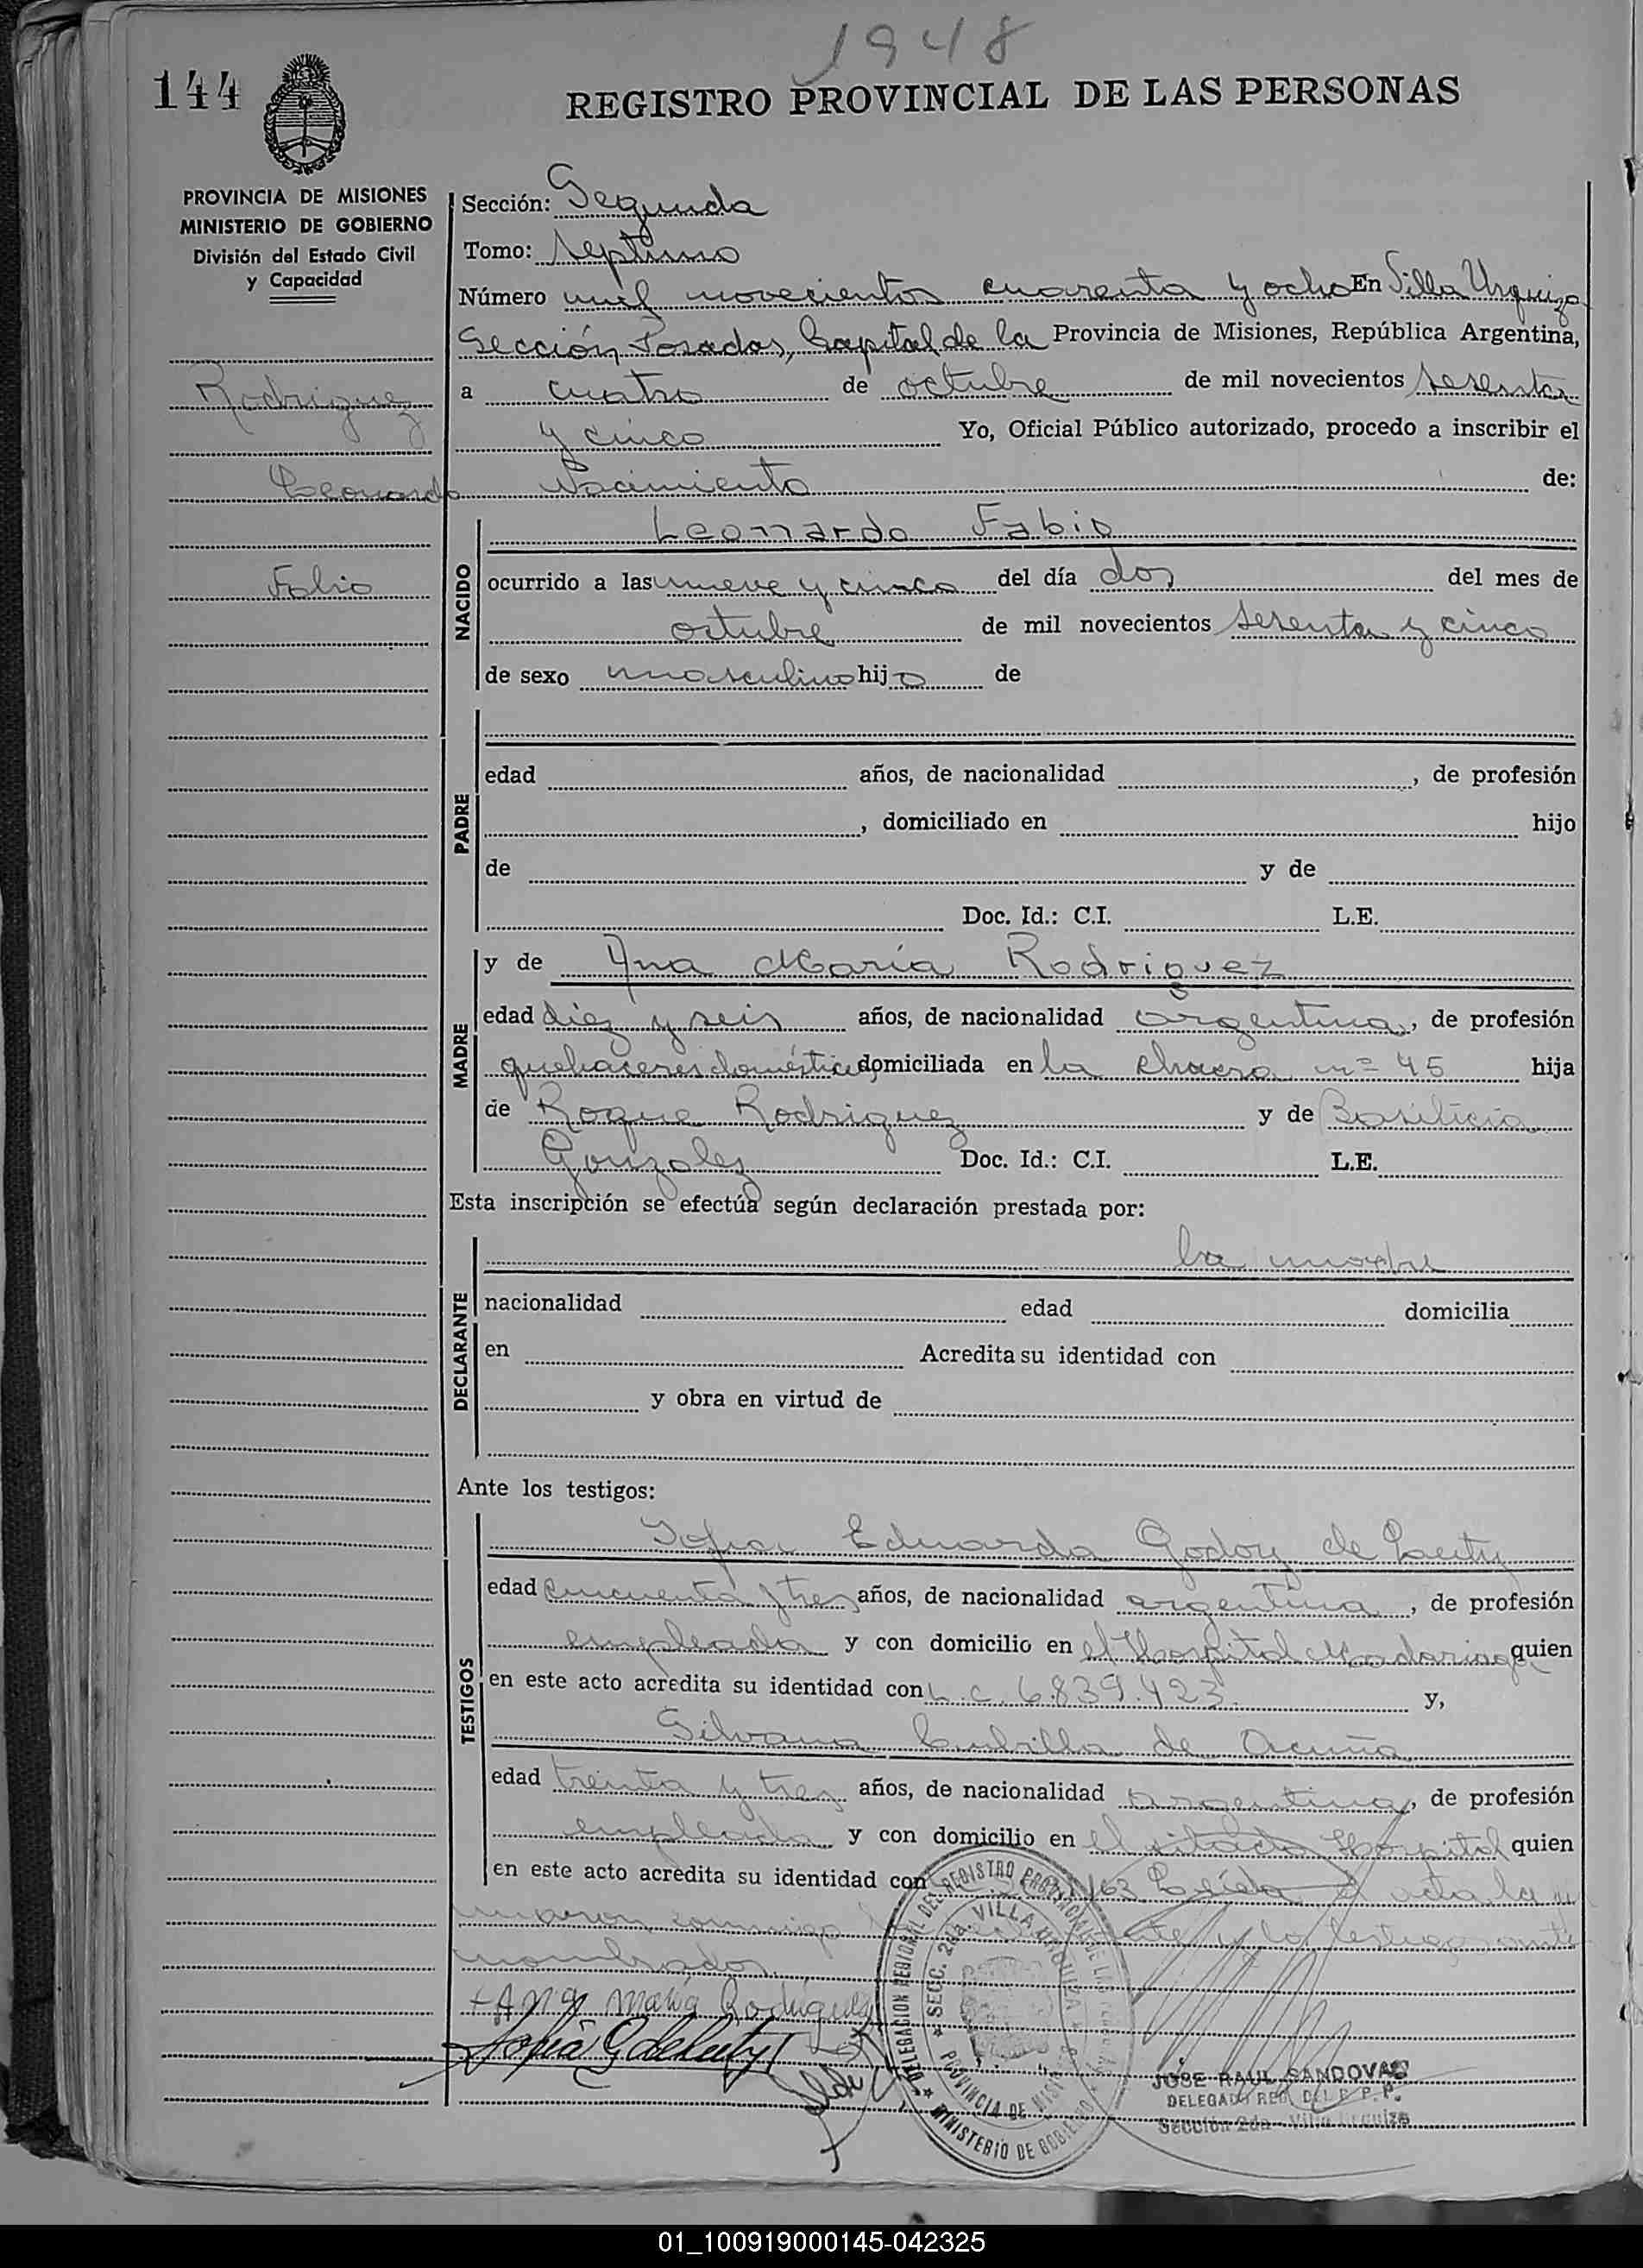 1948
144
REGISTRO PROVINCIAL DE LAS PERSONAS
PROVINCIA DE MISIONES
MINISTERIO DE GOBIERNO
División del Estado Civil
y Capacidad
Rodriguez
Leonardo
Fabio
Sección: Segunda
Tomo: Septimo
Número mil novecientos cuarenta y ocho En Villa Urquiza
Sección Posadas, Capital de la Provincia de Misiones, República Argentina,
a cuatro de octubre de mil novecientos sesenta
y cinco Yo, Oficial Público autorizado, procedo a inscribir el
Nacimiento de:
NACIDO
Leonardo Fabio
ocurrido a las nueve y cinco del día dos del mes de
octubre de mil novecientos sesenta y cinco
de sexo masculino hijo de
PADRE
edad años, de nacionalidad , de profesión
, domiciliado en hijo
de y de
Doc. Id.: C.I. L.E.
MADRE
y de Ana María Rodriguez
edad diez y seis años, de nacionalidad argentina, de profesión
quehaceres domésticos domiciliada en la chacra nº 45 hija
de Roque Rodriguez y de Basilicia
Gonzalez Doc. Id.: C.I. L.E.
Esta inscripción se efectúa según declaración prestada por:
DECLARANTE
la madre
nacionalidad edad domicilia
en Acredita su identidad con
y obra en virtud de
Ante los testigos:
TESTIGOS
Sofia Eduarda Godoy de
edad cincuenta y tres años, de nacionalidad argentina, de profesión
empleada y con domicilio en el Hospital Madariaga quien
en este acto acredita su identidad con L.C. 6.839.423. y,
Silvana Cubilla de Acuña
edad treinta y tres años, de nacionalidad argentina, de profesión
empleada y con domicilio en el citado Hospital quien
en este acto acredita su identidad con 163 Leída el acta la
conmigo y los testigos ante
nombrados.
+ Ana Maria Rodriguez
DELEGACION REGIONAL DEL REGISTRO PROVINCIAL DE LAS
SECC. 2da. VILLA URQUIZA
PROVINCIA DE MISIONES
MINISTERIO DE GOBIERNO
JOSE RAUL SANDOVAL
DELEGADO REG. D.L.R.P.P.
Sección 2da - Villa Urquiza
01_100919000145-042325